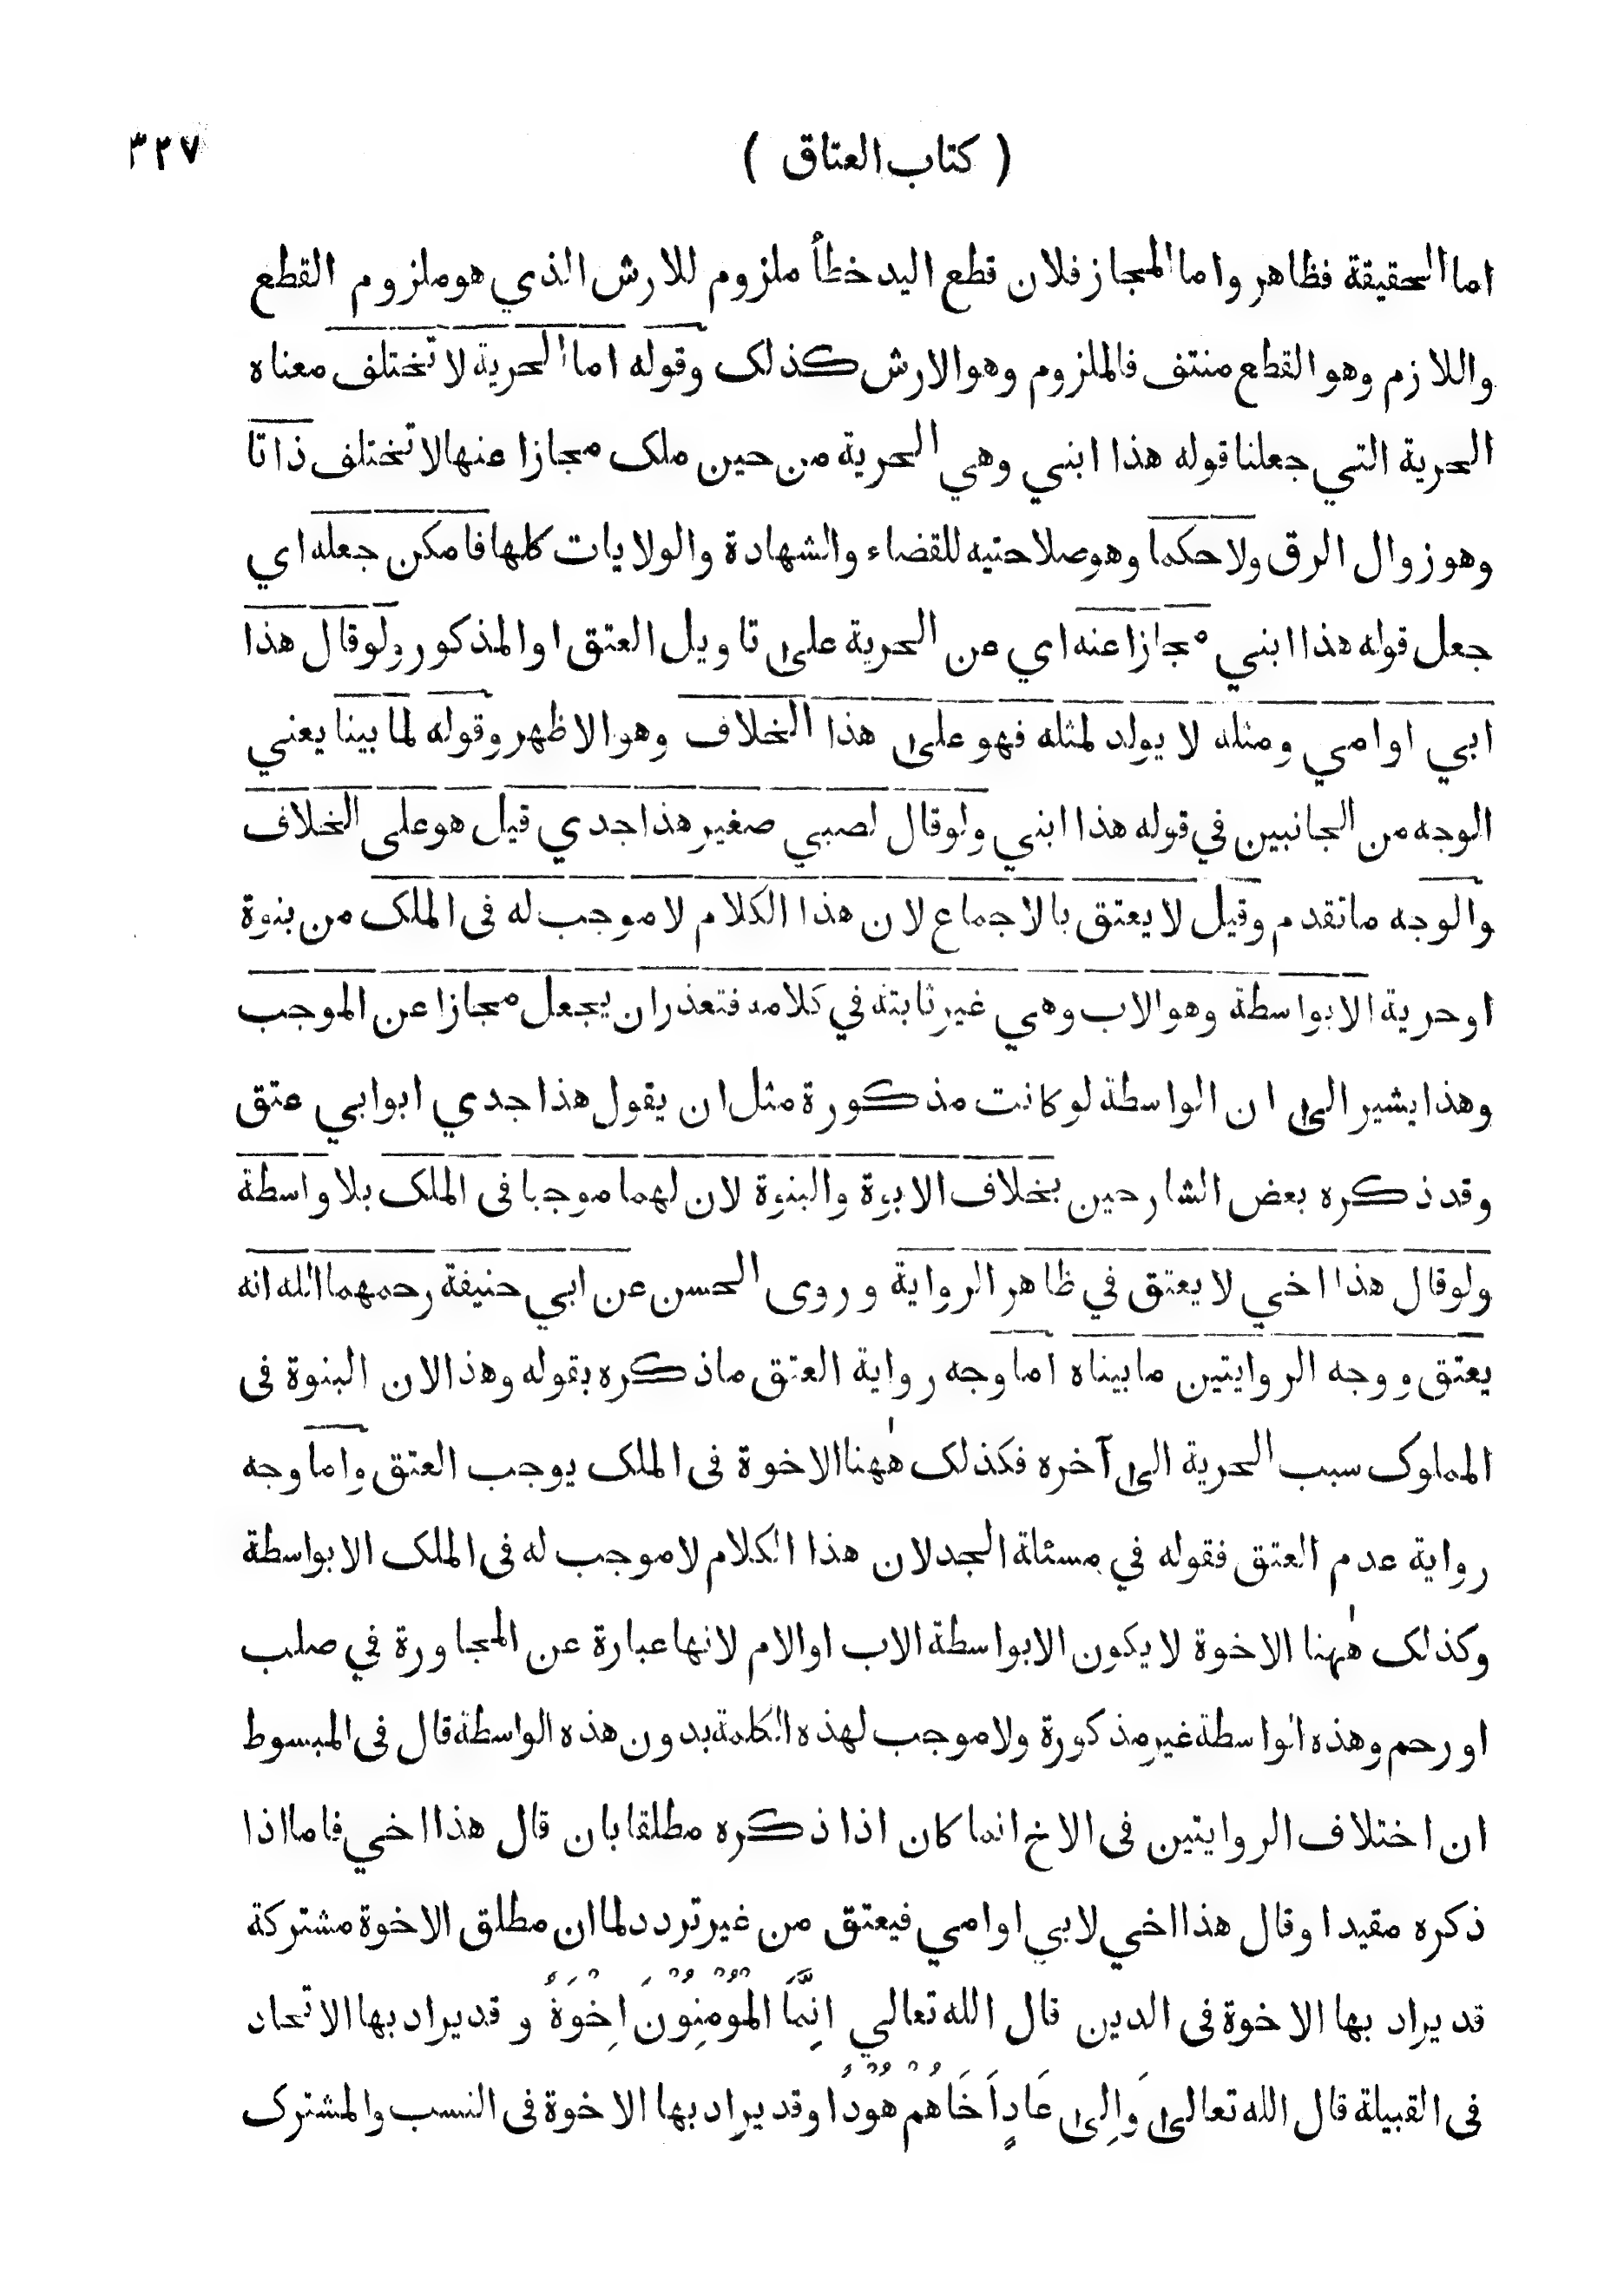 ( كتاب العتاق ) ٣٢٧
اما الحقيقة فظاهر واما المجاز فلان قطع اليد خطأ ملزوم للارش الذي هو ملزوم القطع
واللازم وهو القطع منتف فالملزوم وهو الارش كذلك وقوله اما الحرية لا تختلف معناه
الحرية التي جعلنا قوله هذا ابني وهي الحرية من حين ملك مجازا عنها لا تختلف ذاتا
وهو زوال الرق ولا حكما وهو صلاحتيه للقضاء والشهادة والولايات كلها فامكن جعله اي
جعل قوله هذا ابني مجازا عنه اي عن الحرية على تاويل العتق او المذكور ولو قال هذا
ابي او امي ومثله لا يولد لمثله فهو على هذا الخلاف وهو الاظهر وقوله لما بينا يعني
الوجه من الجانبين في قوله هذا ابني ولو قال لصبي صغير هذا جدي قيل هو على الخلاف
والوجه ما تقدم وقيل لا يعتق بالاجماع لان هذا الكلام لا موجب له فى الملك من بنوة
او حرية الا بواسطة وهو الاب وهي غير ثابتة في كلامه فتعذر ان يجعل مجازا عن الموجب
وهذا يشير الى ان الواسطة لو كانت مذكورة مثل ان يقول هذا جدي ابو ابي عتق
وقد ذكره بعض الشارحين بخلاف الابوة والبنوة لان لهما موجبا فى الملك بلا واسطة
ولو قال هذا اخي لا يعتق في ظاهر الرواية وروى الحسن عن ابي حنيفة رحمهما الله انه
يعتق ووجه الروايتين ما بيناه اما وجه رواية العتق ما ذكره بقوله وهذا لان البنوة فى
المملوك سبب الحرية الى آخره فكذلك ههنا الاخوة فى الملك يوجب العتق واما وجه
رواية عدم العتق فقوله في مسئلة الجد لان هذا الكلام لا موجب له فى الملك الا بواسطة
وكذلك ههنا الاخوة لا يكون الا بواسطة الاب او الام لانها عبارة عن المجاورة في صلب
او رحم وهذه الواسطة غير مذكورة ولا موجب لهذه الكلمة بدون هذه الواسطة قال فى المبسوط
ان اختلاف الروايتين فى الاخ انما كان اذا ذكره مطلقا بان قال هذا اخي فاما اذا
ذكره مقيدا وقال هذا اخي لابي او امي فيعتق من غير تردد لما ان مطلق الاخوة مشتركة
قد يراد بها الاخوة فى الدين قال الله تعالي اِنَّمَا الْمُؤْمِنُونَ اِخْوَةٌ وقد يراد بها الاتحاد
فى القبيلة قال الله تعالى وَاِلى عَادٍ اَخَاهُمْ هُوْدًا وقد يراد بها الاخوة فى النسب والمشترك